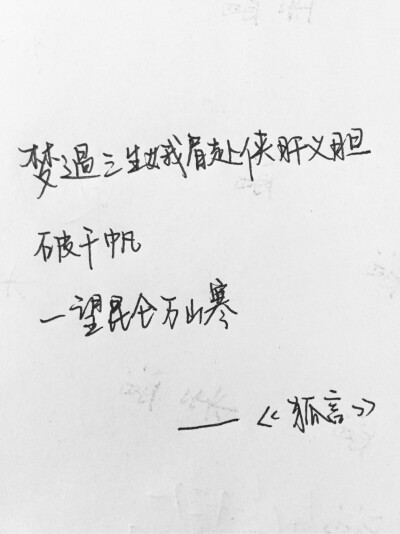 梦過三生娥眉赴侠肝义胆
破千帆
一望昆仑万山寒
——《狐言》